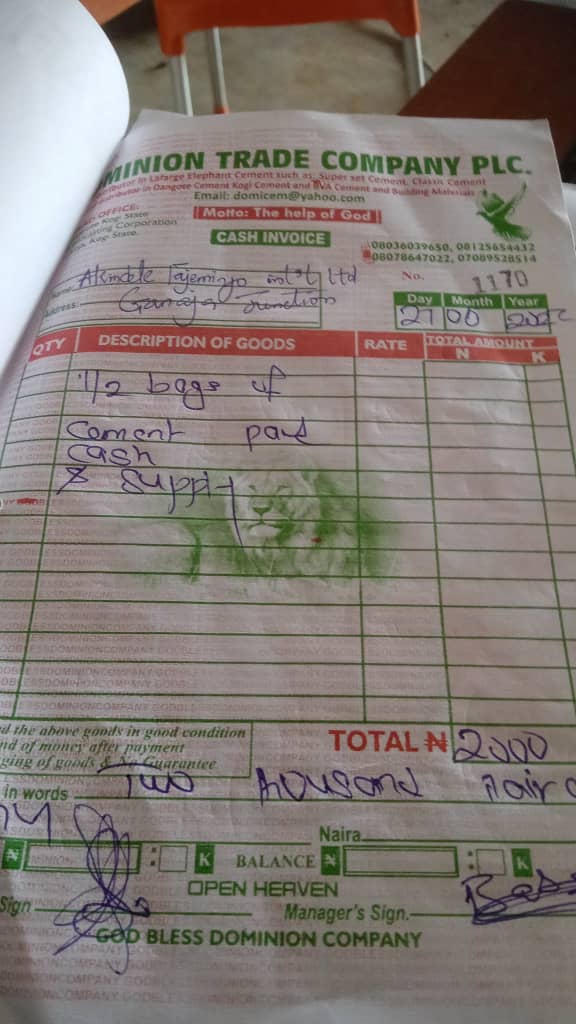 MINION TRADE COMPANY PLC.
tributor in Lafarge Elephant Cement such as: Super set Cement, Classic Cement
tributor in Dangote Cement Kogi Cement and BVA Cement and Building Materials
Email: domicem@yahoo.com
OFFICE:
Kogi State
sting Corporation
Kogi State.
Motto: The help of God
CASH INVOICE
08036039650, 08125654432
08078647022, 07089528514
No. 1170
Name: intl Ltd
Address: Ganaja Junction
Day Month Year
QTY DESCRIPTION OF GOODS RATE TOTAL AMOUNT
N K
1/2 bags of
Cement paid
cash
& Supply
d the above goods in good condition
nd of money after payment
ging of goods & No Guarantee
TOTAL ₦ 2000
in words Two thousand naira
Naira
₦ : K BALANCE ₦ : K
OPEN HEAVEN
Sign Manager's Sign.
GOD BLESS DOMINION COMPANY